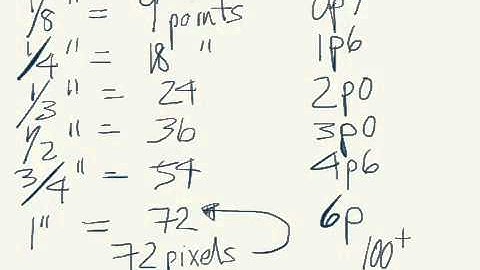 1/8 " = 9 points 0p9
1/4 " = 18 " 1p6
1/3 " = 24 2p0
1/2 " = 36 3p0
3/4 " = 54 4p6
1" = 72 6p
72 pixels 100+